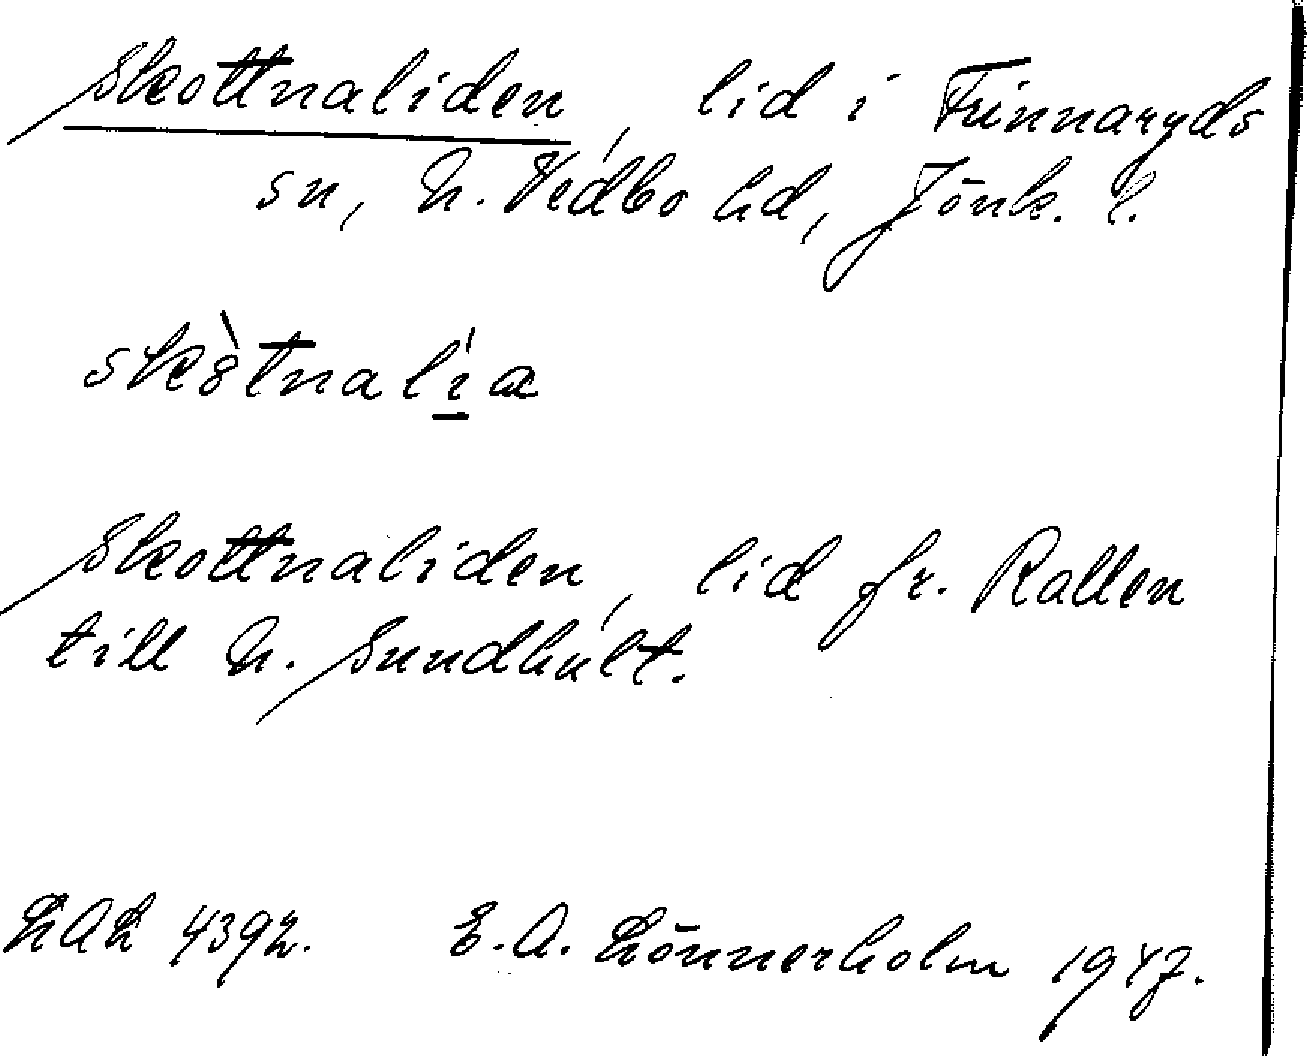 Skottnaliden, lid i Frinnaryds
sn, N. Vedbo hd, Jönk. l.
skòtnalia
Skottnaliden, lid fr. Rallen
till N. Sundhult.
LAL 4392. E. A. Lönnerholm 1947.